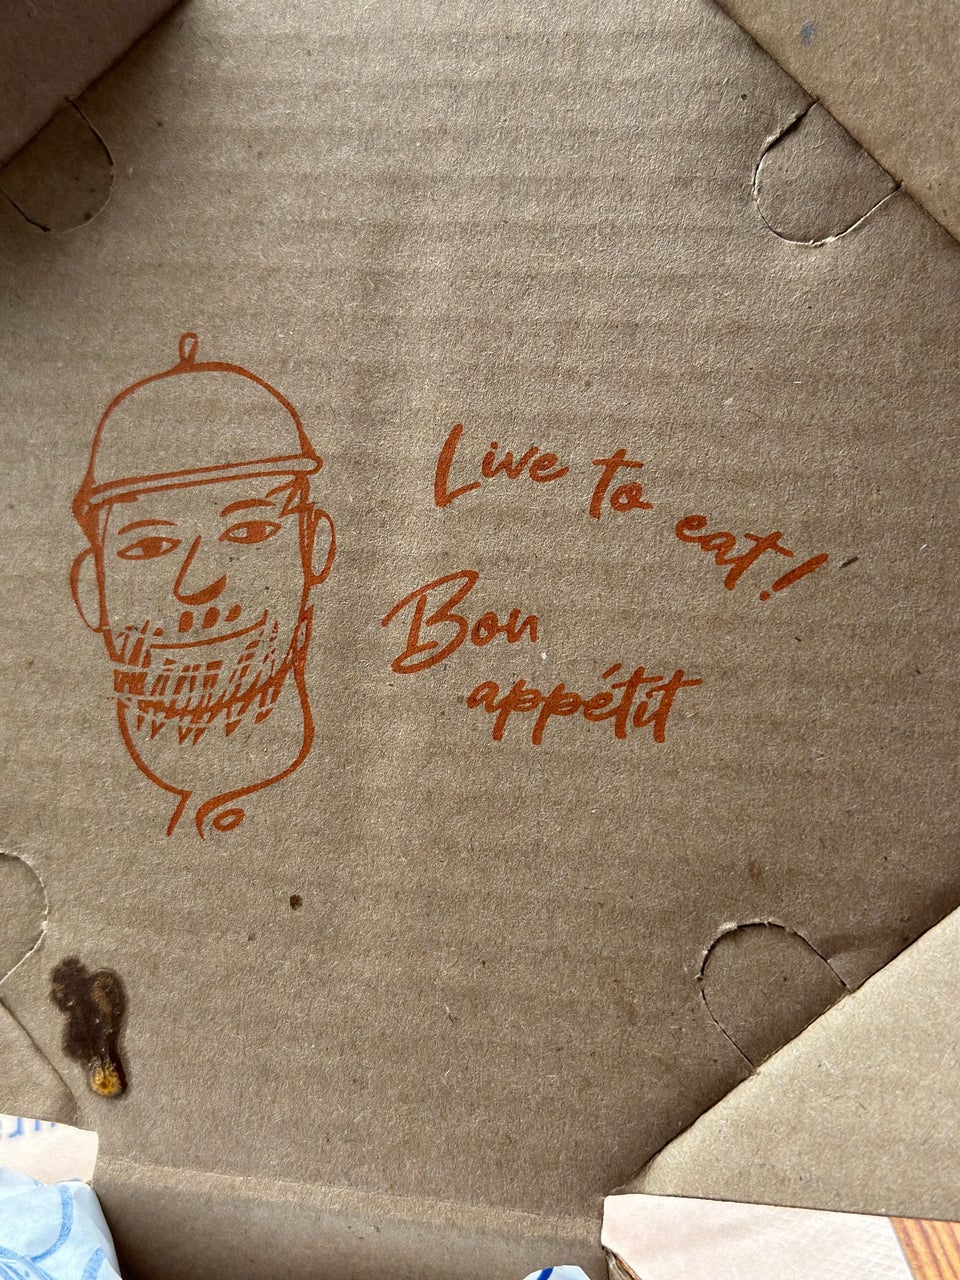 Live to
eat!
Bon
appétit